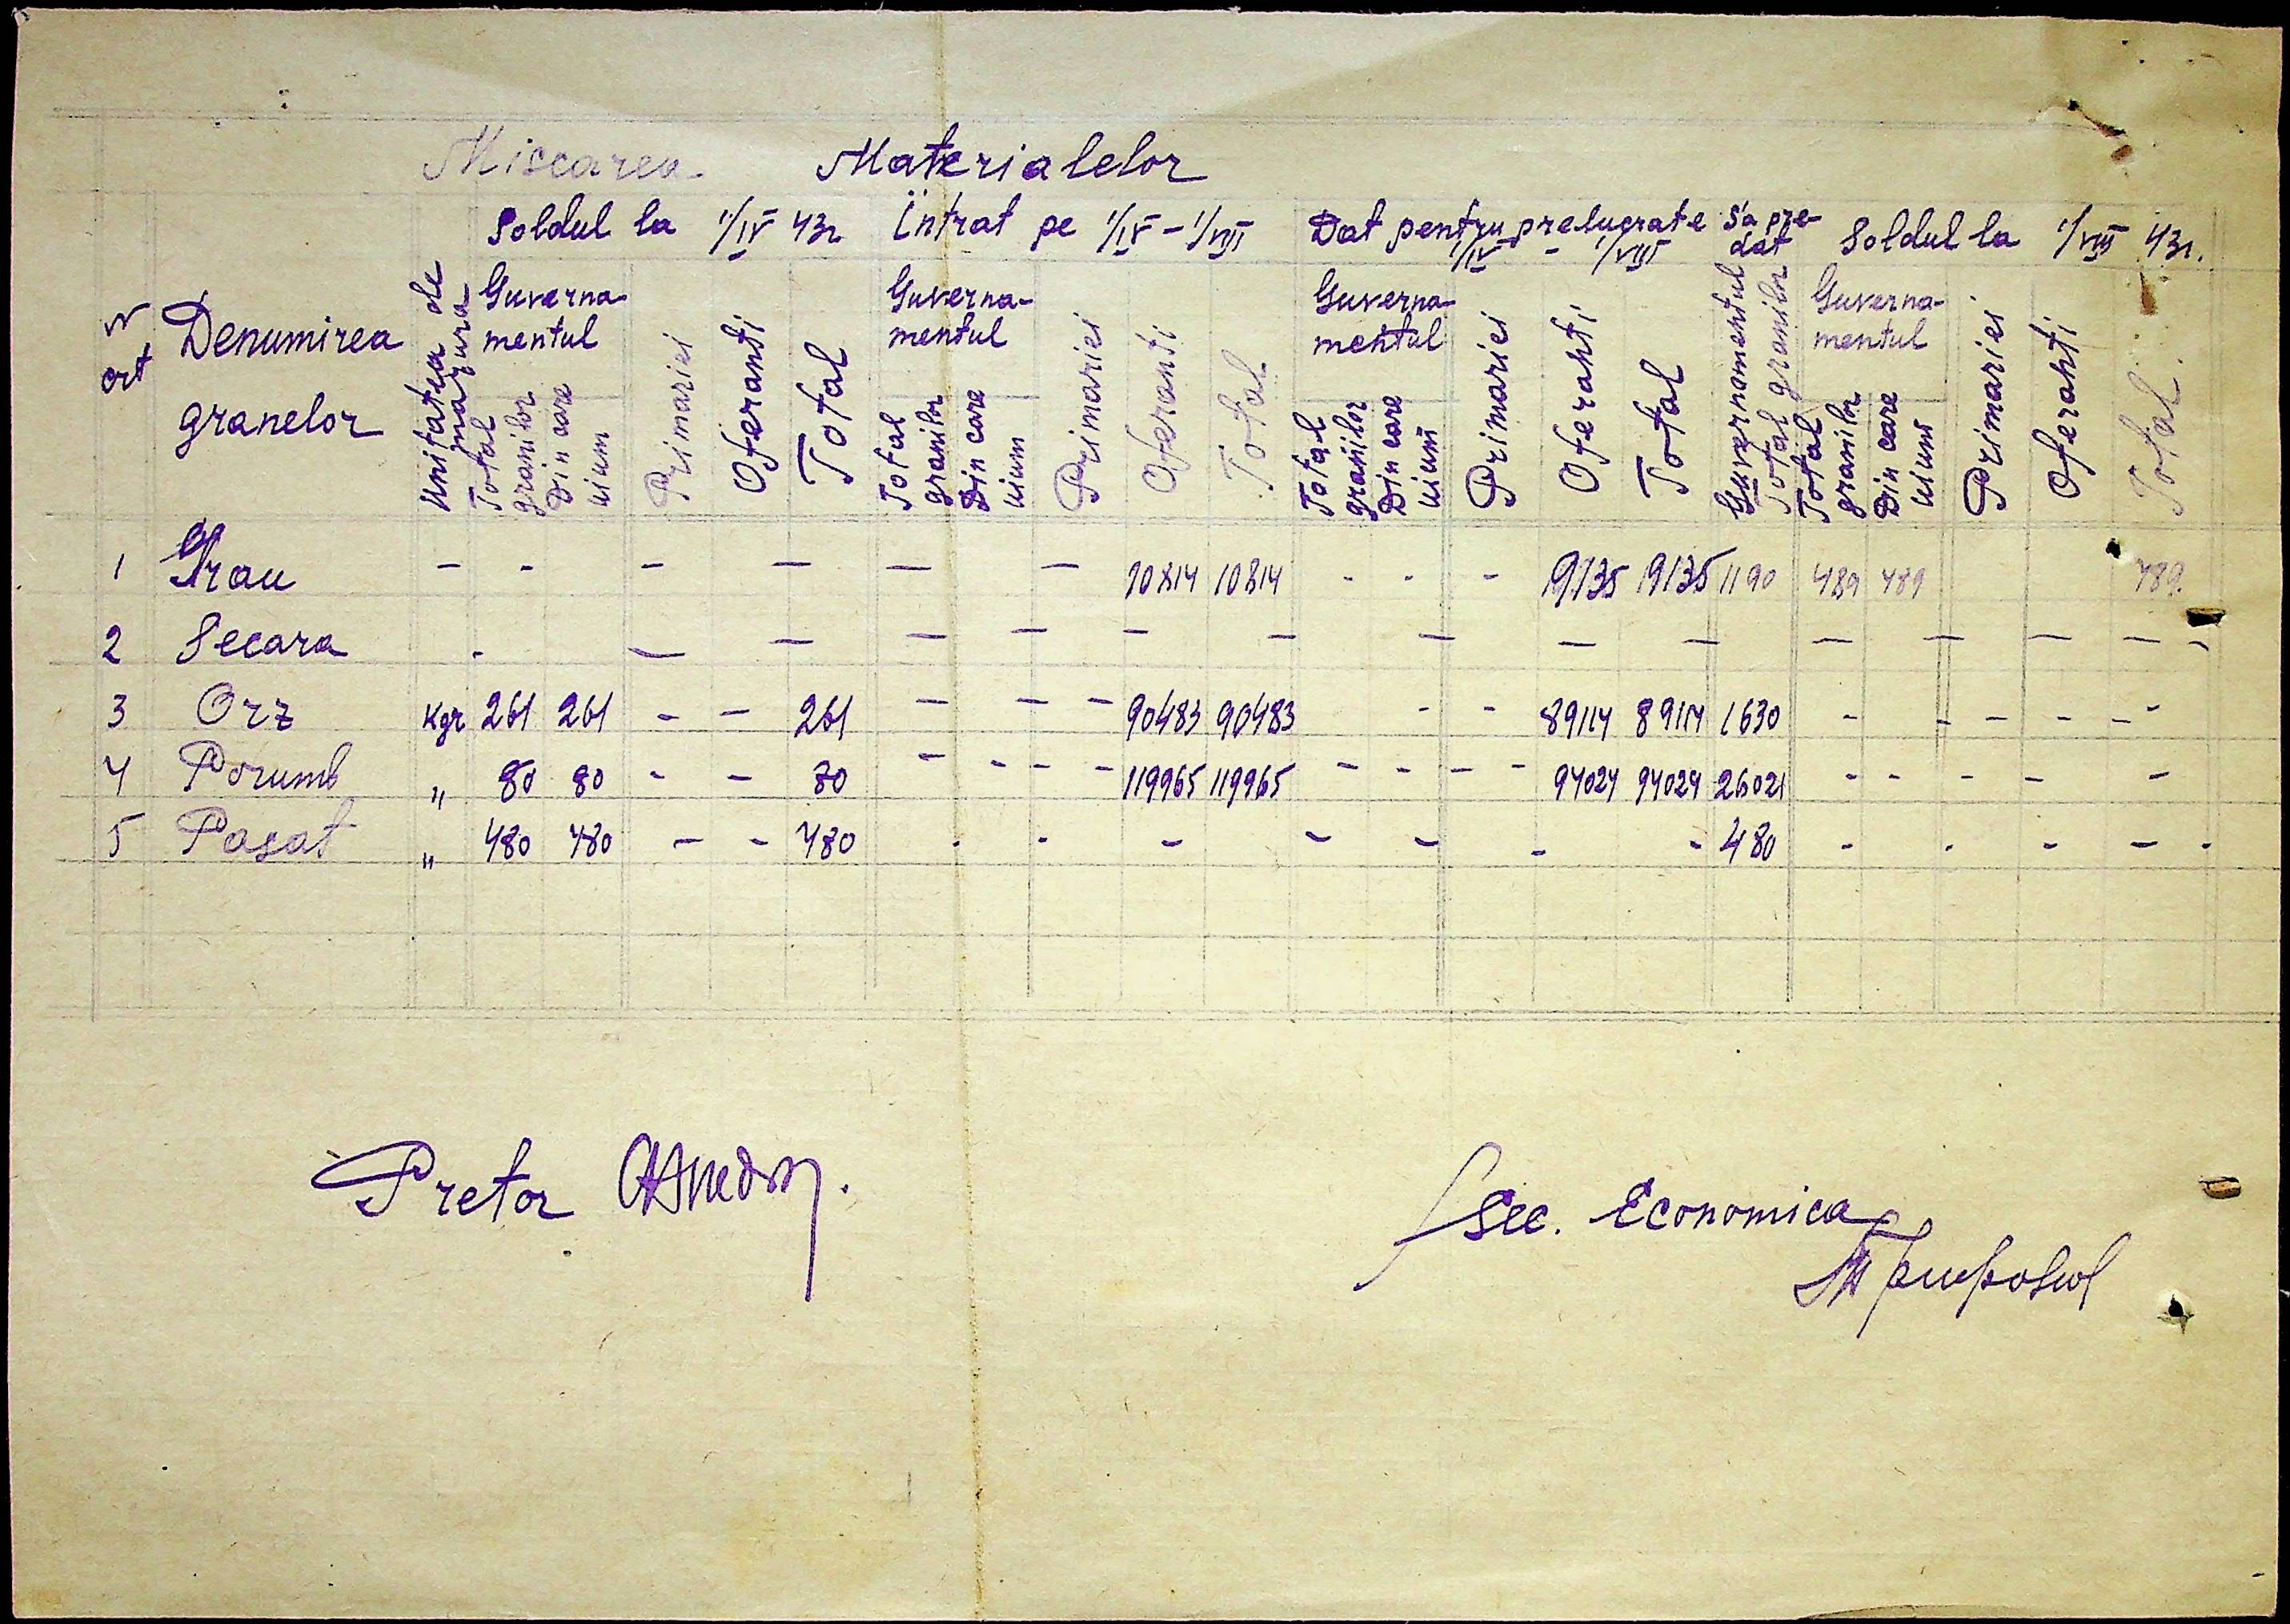 Miscarea Materialelor
Soldul la 1/IV 43r. Întrat pe 1/IV – 1/VIII Dat pentru prelucrate 1/IV – 1/VIII S'a pre-dat Soldul la 1/VIII 43r.
N ort Denumirea granelor Unitatea de masura
Guverna-mentul Total granilor Din care uium Primariei Oferanti Total
Guverna-mentul Total granilor Din care uium Primariei Oferanti Total
Guverna-mentul Total granilor Din care uium Primariei Oferanti Total
Guvernamentul Total granilor
Guverna-mentul Total granilor Din care uium Primariei Oferanti Total
1 Grau – - – – – – 10814 10814 - - - 9135 9135 1190 489 489 489.
2 Secara - – – – – – – – – – – – – – -
3 Orz Kgr 261 261 - – 261 – – – 90483 90483 - - 89114 89114 1630 - - - - - -
4 Porumb " 80 80 - - 80 - - - - 119965 119965 - - - - 94024 94024 26021 - - - - -
5 Pasat " 480 480 - - 480 - - - - - - - 480 - - - - -
Pretor
Sec. Economica